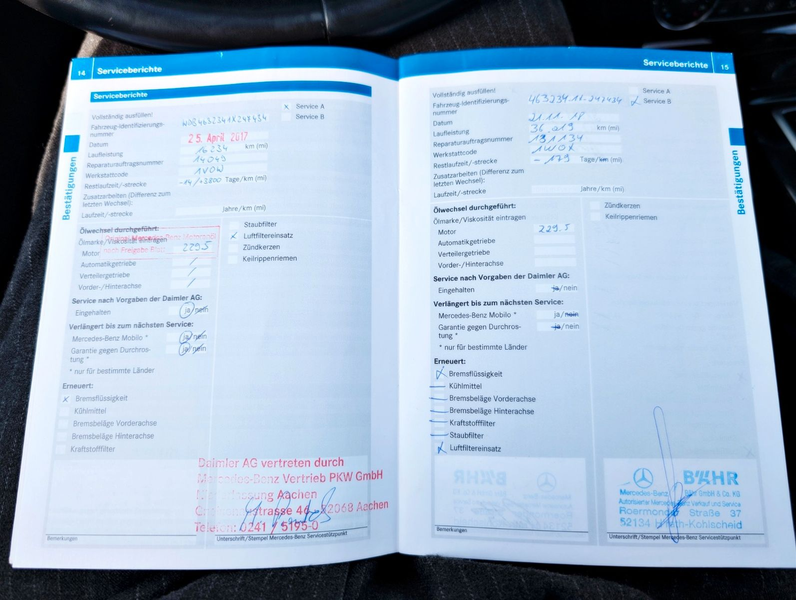 14 Serviceberichte
Serviceberichte
Vollständig ausfüllen!
Service A
Service B
Fahrzeug-Identifizierungs-
nummer
WDB4632341X247434
Datum 25. April 2017
Laufleistung 16234 km (mi)
Reparaturauftragsnummer 14040
Werkstattcode 1VOW
Restlaufzeit/-strecke -14/+3800 Tage/km (mi)
Zusatzarbeiten (Differenz zum
letzten Wechsel):
Laufzeit/-strecke Jahre/km (mi)
Bestätigungen
Ölwechsel durchgeführt:
Ölmarke/Viskosität eintragen
Motor 229.5
Automatikgetriebe /
Verteilergetriebe /
Vorder-/Hinterachse /
Staubfilter
Luftfiltereinsatz
Zündkerzen
Keilrippenriemen
Service nach Vorgaben der Daimler AG:
Eingehalten ja/nein
Verlängert bis zum nächsten Service:
Mercedes-Benz Mobilo * ja/nein
Garantie gegen Durchros-
tung * ja/nein
* nur für bestimmte Länder
Erneuert:
x Bremsflüssigkeit
Kühlmittel
Bremsbeläge Vorderachse
Bremsbeläge Hinterachse
Kraftstofffilter
Daimler AG vertreten durch
Mercedes-Benz Vertrieb PKW GmbH
Niederlassung Aachen
52068 Aachen
Telefon: 0241 / 5195-0
Bemerkungen
Unterschrift/Stempel Mercedes-Benz Servicestützpunkt
Serviceberichte 15
Vollständig ausfüllen!
Service A
Service B
Fahrzeug-Identifizierungs-
nummer
463234.1X.247434
Datum 21.11.18
Laufleistung 36 019 km (mi)
Reparaturauftragsnummer 131134
Werkstattcode 1WOX
Restlaufzeit/-strecke - 179 Tage/km (mi)
Zusatzarbeiten (Differenz zum
letzten Wechsel):
Laufzeit/-strecke Jahre/km (mi)
Bestätigungen
Ölwechsel durchgeführt:
Ölmarke/Viskosität eintragen
Motor 229.5
Automatikgetriebe
Verteilergetriebe
Vorder-/Hinterachse
Zündkerzen
Keilrippenriemen
Service nach Vorgaben der Daimler AG:
Eingehalten ja/nein
Verlängert bis zum nächsten Service:
Mercedes-Benz Mobilo * ja/nein
Garantie gegen Durchros-
tung * ja/nein
* nur für bestimmte Länder
Erneuert:
Bremsflüssigkeit
Kühlmittel
Bremsbeläge Vorderachse
Bremsbeläge Hinterachse
Kraftstofffilter
Staubfilter
Luftfiltereinsatz
BÄHR
Mercedes-Benz GmbH & Co. KG
Autorisierter Mercedes-Benz Verkauf und Service
Roermonder Straße 37
52134 Kohlscheid
Bemerkungen
Unterschrift/Stempel Mercedes-Benz Servicestützpunkt